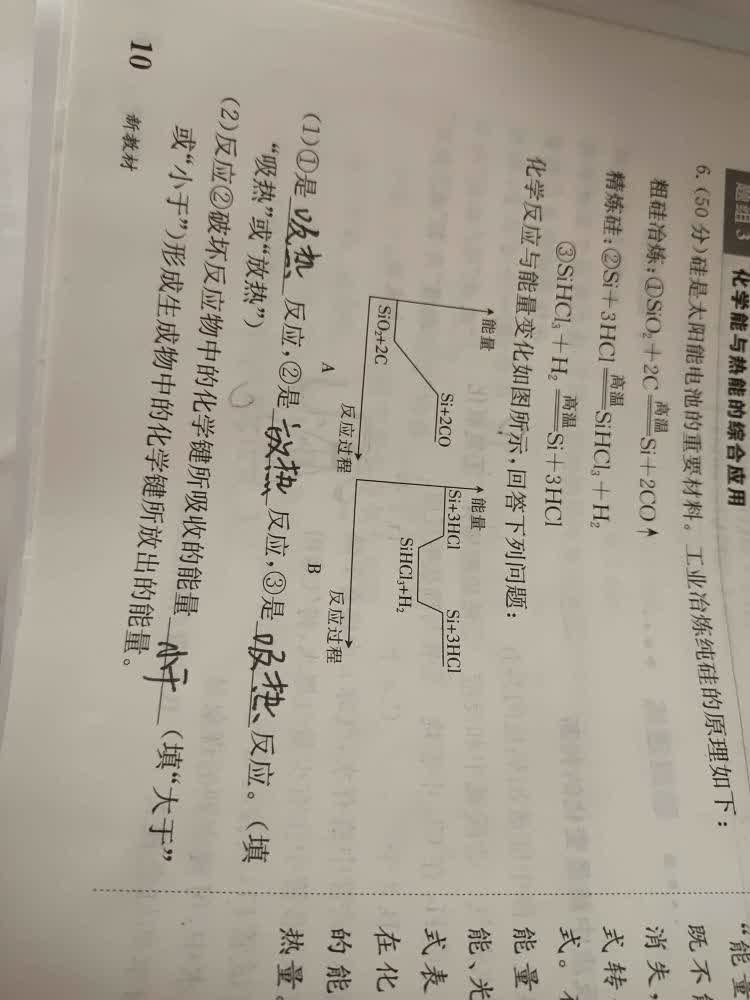 题组3 化学能与热能的综合应用
6.(50分)硅是太阳能电池的重要材料。工业冶炼纯硅的原理如下:
粗硅冶炼:①SiO₂+2C 高温 Si+2CO↑
精炼硅:②Si+3HCl 高温 SiHCl₃+H₂
③SiHCl₃+H₂ 高温 Si+3HCl
化学反应与能量变化如图所示,回答下列问题:
能量
Si+2CO
SiO₂+2C
反应过程
A
能量
Si+3HCl
Si+3HCl
SiHCl₃+H₂
反应过程
B
(1)①是 吸热 反应,②是 放热 反应,③是 吸热 反应。(填
“吸热”或“放热”)
(2)反应②破坏反应物中的化学键所吸收的能量 小于 (填“大于”
或“小于”)形成生成物中的化学键所放出的能量。
10
新教材
“能量
既不
消失
式转
式。
能量
能、光
式表
在化
的能
热量。